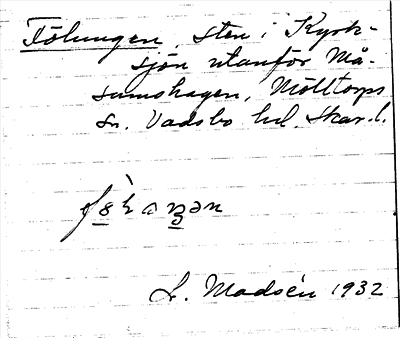 Fölungen, sten i Kyrk-
sjön utanför Må-
sumshagen, Mölltorps
sn. Vadsbo hd. Skar. l.
L. Madsén 1932